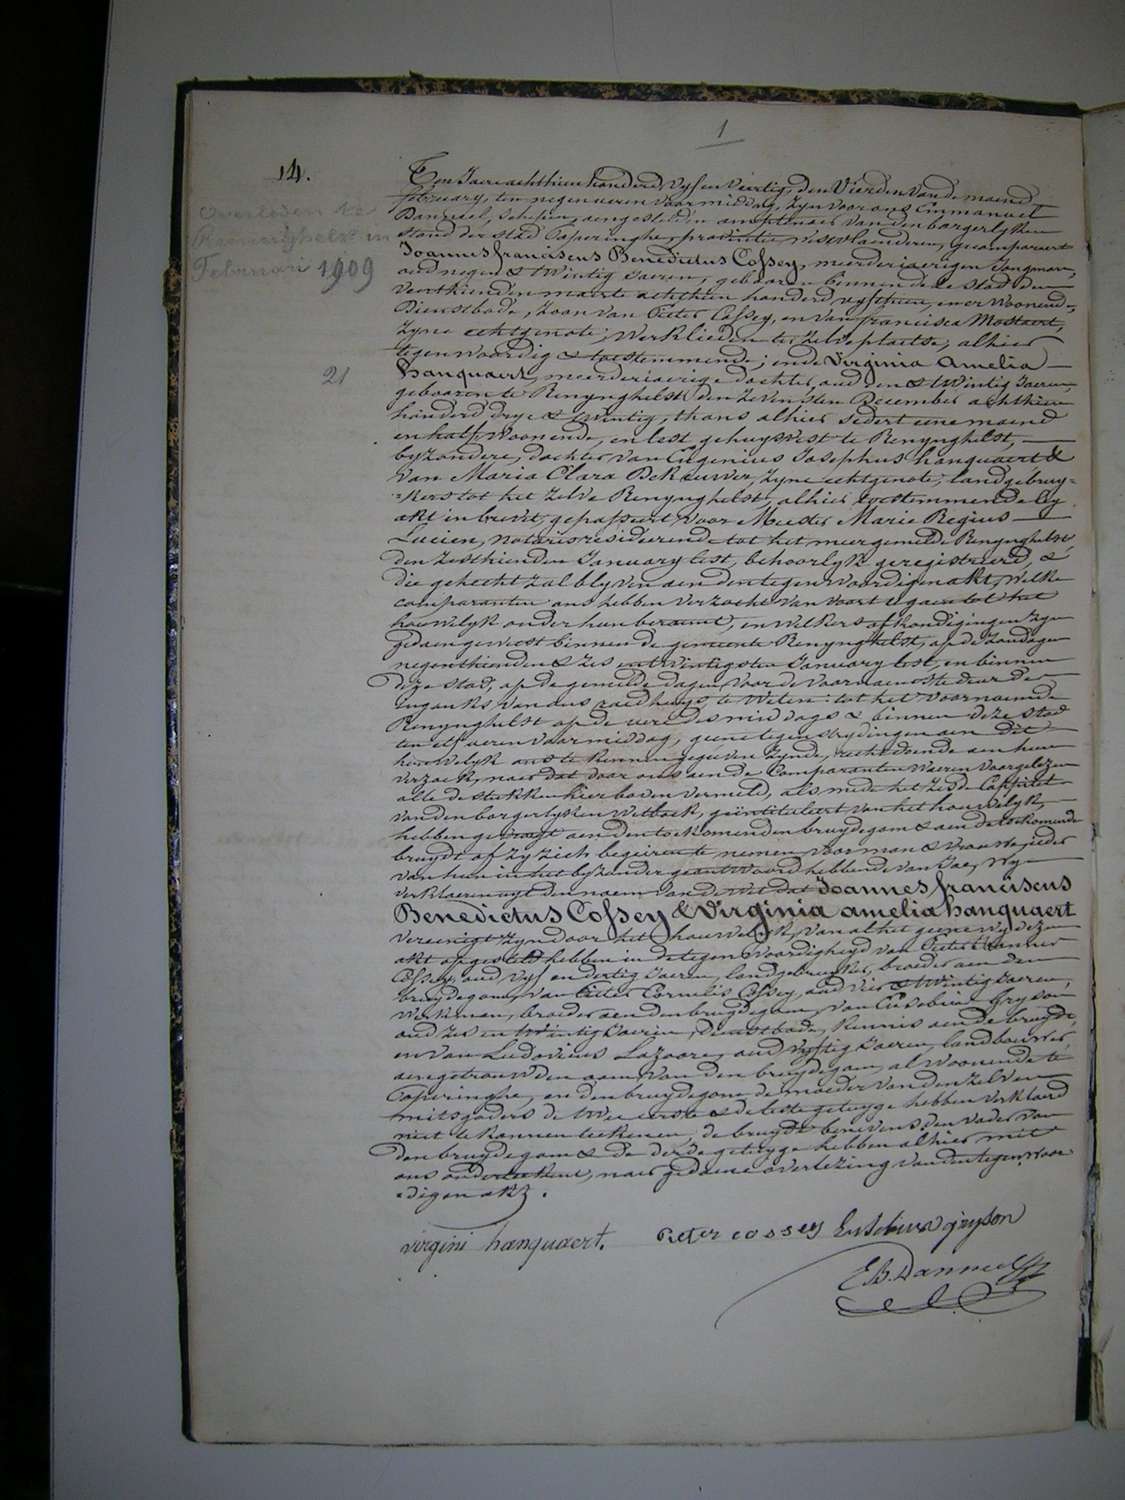 1
14.
Overleden te
Reninghelst in
Februari 1909
21
Ten Jaere achthien honderd vyf en veertig, den Vierden van de maend
february, ten negen ueren voormiddag, zyn voor ons Emmanuel
Banneel, schepen, aengestelden amptenaer van den borgerlyken
stand der stad Poperinghe, provintie westvlaenderen, gecompareert
Joannes franciscus Benedictus Cossey, meerderjaerigen Jongman,
oud negen & twintig Jaeren, gebooren binnen deze stad den
veerthienden maerte achthien honderd vyfthien, en er woonend,
Dienstbode, zoon van Pieter Cossey, en van francisca Mostaert,
zyne echtgenote, werklieden ter zelve plaetse, alhier
tegenwoordig & toestemmende; ende Virginia Amelia
hanquaert, meerderjaerige dochter, oud een & twintig Jaeren,
gebooren te Renynghelst den zevensten December achthien
honderd drye & twintig, thans alhier sedert eene maend
en half woonende, en lest gehuysvest te Renynghelst,
byzondere, dochter van Eugenius Josephus hanquaert &
van Maria Clara DeKeuwer, zyne echtgenote, landgebruy-
-kers tot het zelve Renynghelst, alhier toestemmende by
akt in brevet, gepasseert voor Meester Marie Regius
Lucien, notaris resideerende tot het meergemelde Renynghelst
den zesthienden January lest, behoorlyk geregistreerd, &
die gehecht zal blyven aen den tegenwoordigen akt, welke
comparanten ons hebben verzocht van voort te gaen tot het
houwelyk onder hun beraemt, en welkers afkondigingen zyn
gedaen geweest binnen de gemeente Renynghelst, op de zondagen
negenthienden & zes entwintigsten January lest, en binnen
deze stad, op de gemelde dagen, voor de voornaemste deur der
ingank van ons raedhuys, te weten: tot het voornoemde
Renynghelst op de uere des middags & binnen deze stad
ten elf ueren voormiddag, geene tegenstrydingen aen dit
houwelyk ons te kennen gegeven zynde, rechtdoende aen hun
verzoek, naer dat door ons aen de comparanten waeren voorgelezen
alle de stukken hier boven vermeld, als mede het zesde Capittel
van den borgerlyken wetboek, geïntituleert van het houwelyk,
hebben gevraegt aen den toekomenden bruydegom & aen de toekomende
bruydt of zy zich begeiren te nemen voor man & vrouw, ieder
van hun in het byzonder geantwoord hebbende van Jae, wy
verklaeren uyt den naem van de wet dat Joannes franciscus
Benedictus Cossey & Virginia amelia hanquaert
vereenigt zyn door het houwelyk, van al het geene wy dezen
akt opgesteld hebben in de tegenwoordigheyd van Pieter
Cossey, oud vyf en dertig Jaeren, landgebruyker, broeder aen den
bruydegom, van Pieter Cornelis Cossey, oud vier & twintig Jaeren,
werkman, broeder aen den bruydegom, van Eusebius Gryson
oud zes en twintig Jaeren, dienstbode, kennis aen de bruydt,
en van Ludovicus Lazoore, oud vyftig Jaeren, landbouwer,
aengetrouwden oom van den bruydegom, al woonende te
Poperinghe, en den bruydegom, de moeder van den zelven
mitsgaders de twee eerste & de leste getuyge hebben verklaerd
niet te konnen teekenen, de bruydt benevens den vader van
den bruydegom & de derde getuyge hebben alhier met
ons onderteekent, naer gedaene overlezing van den tegenwoor
-digen akt.
virgini hanquaert. Pieter cossey Eusebius gryson
E. Banneel